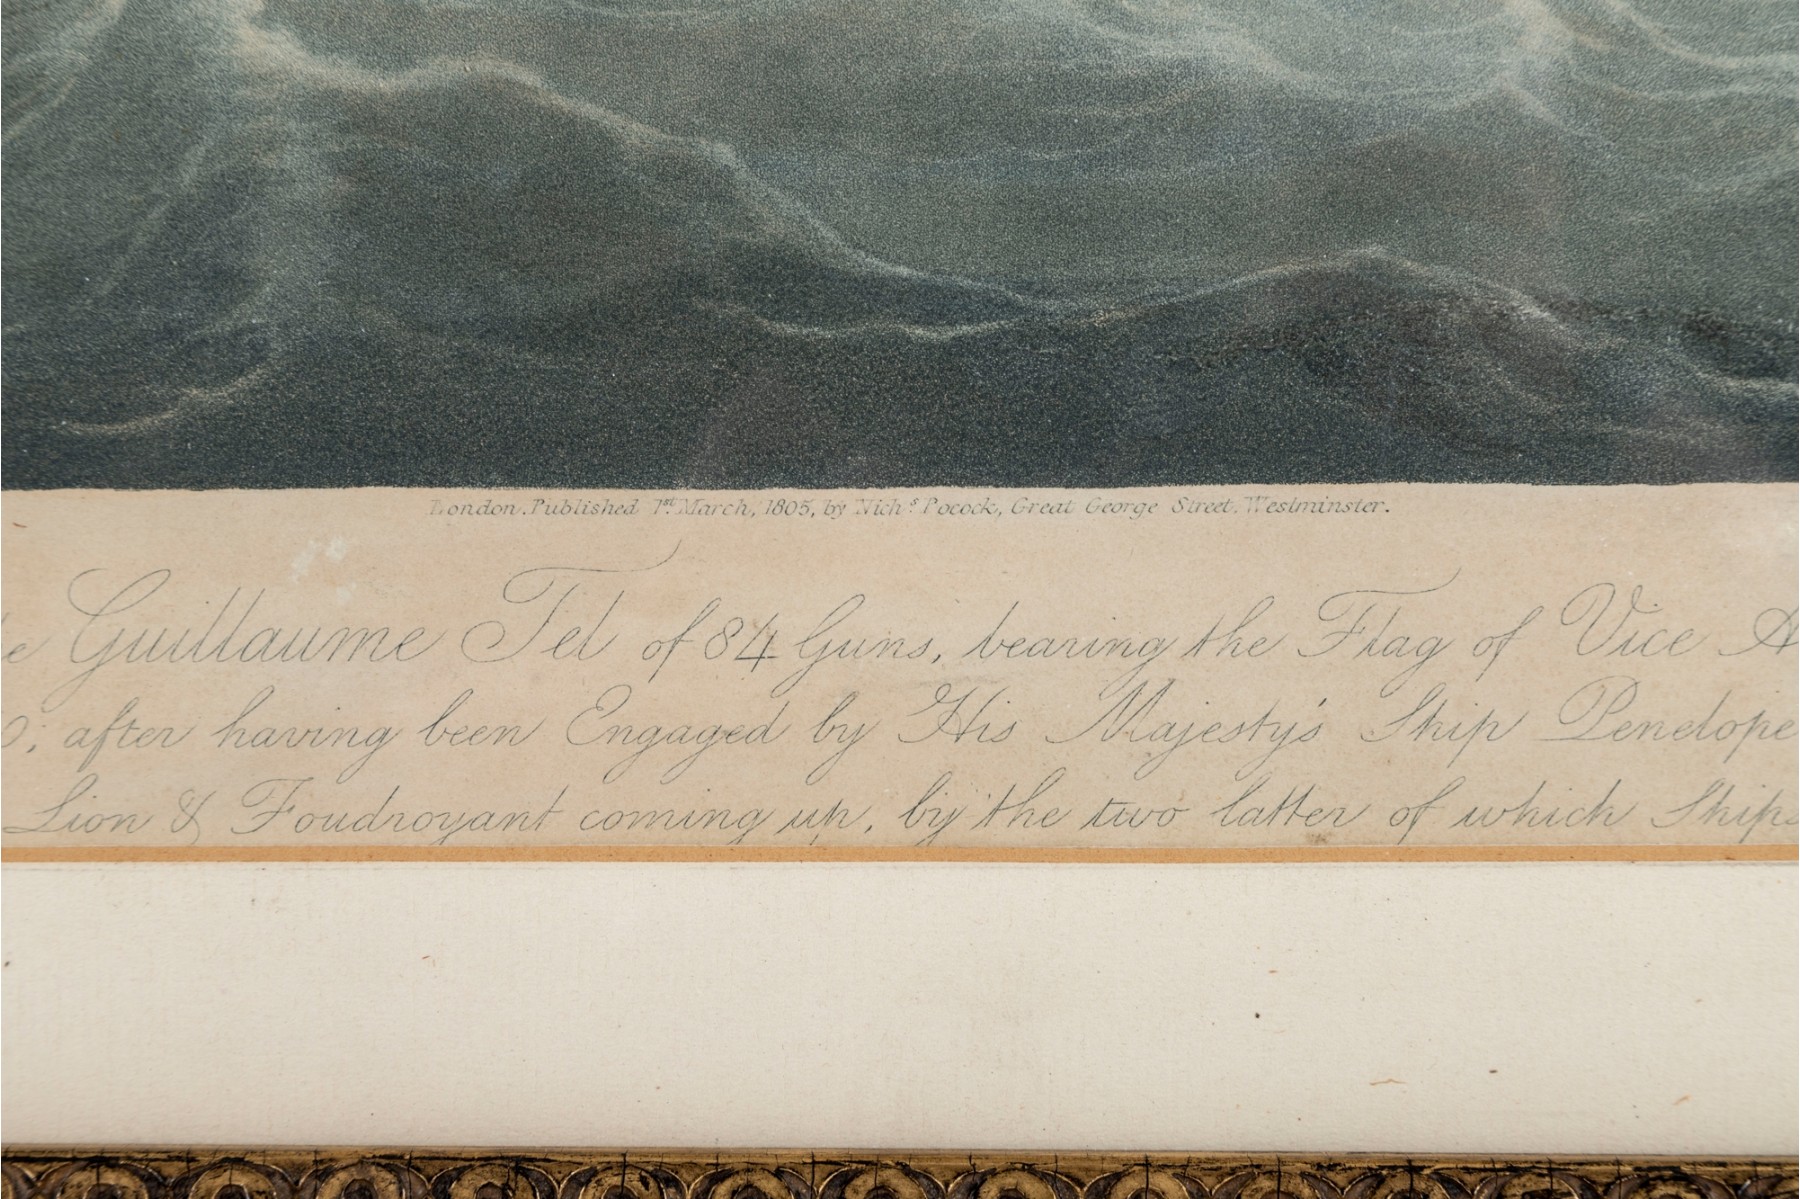 London. Published 1st March, 1805, by Nichs Pocock, Great George Street, Westminster.
Guillaume Tel of 84 Guns, bearing the Flag of Vice A
after having been Engaged by His Majesty's Ship Penelope
Lion & Foudroyant coming up, by the two latter of which Ships